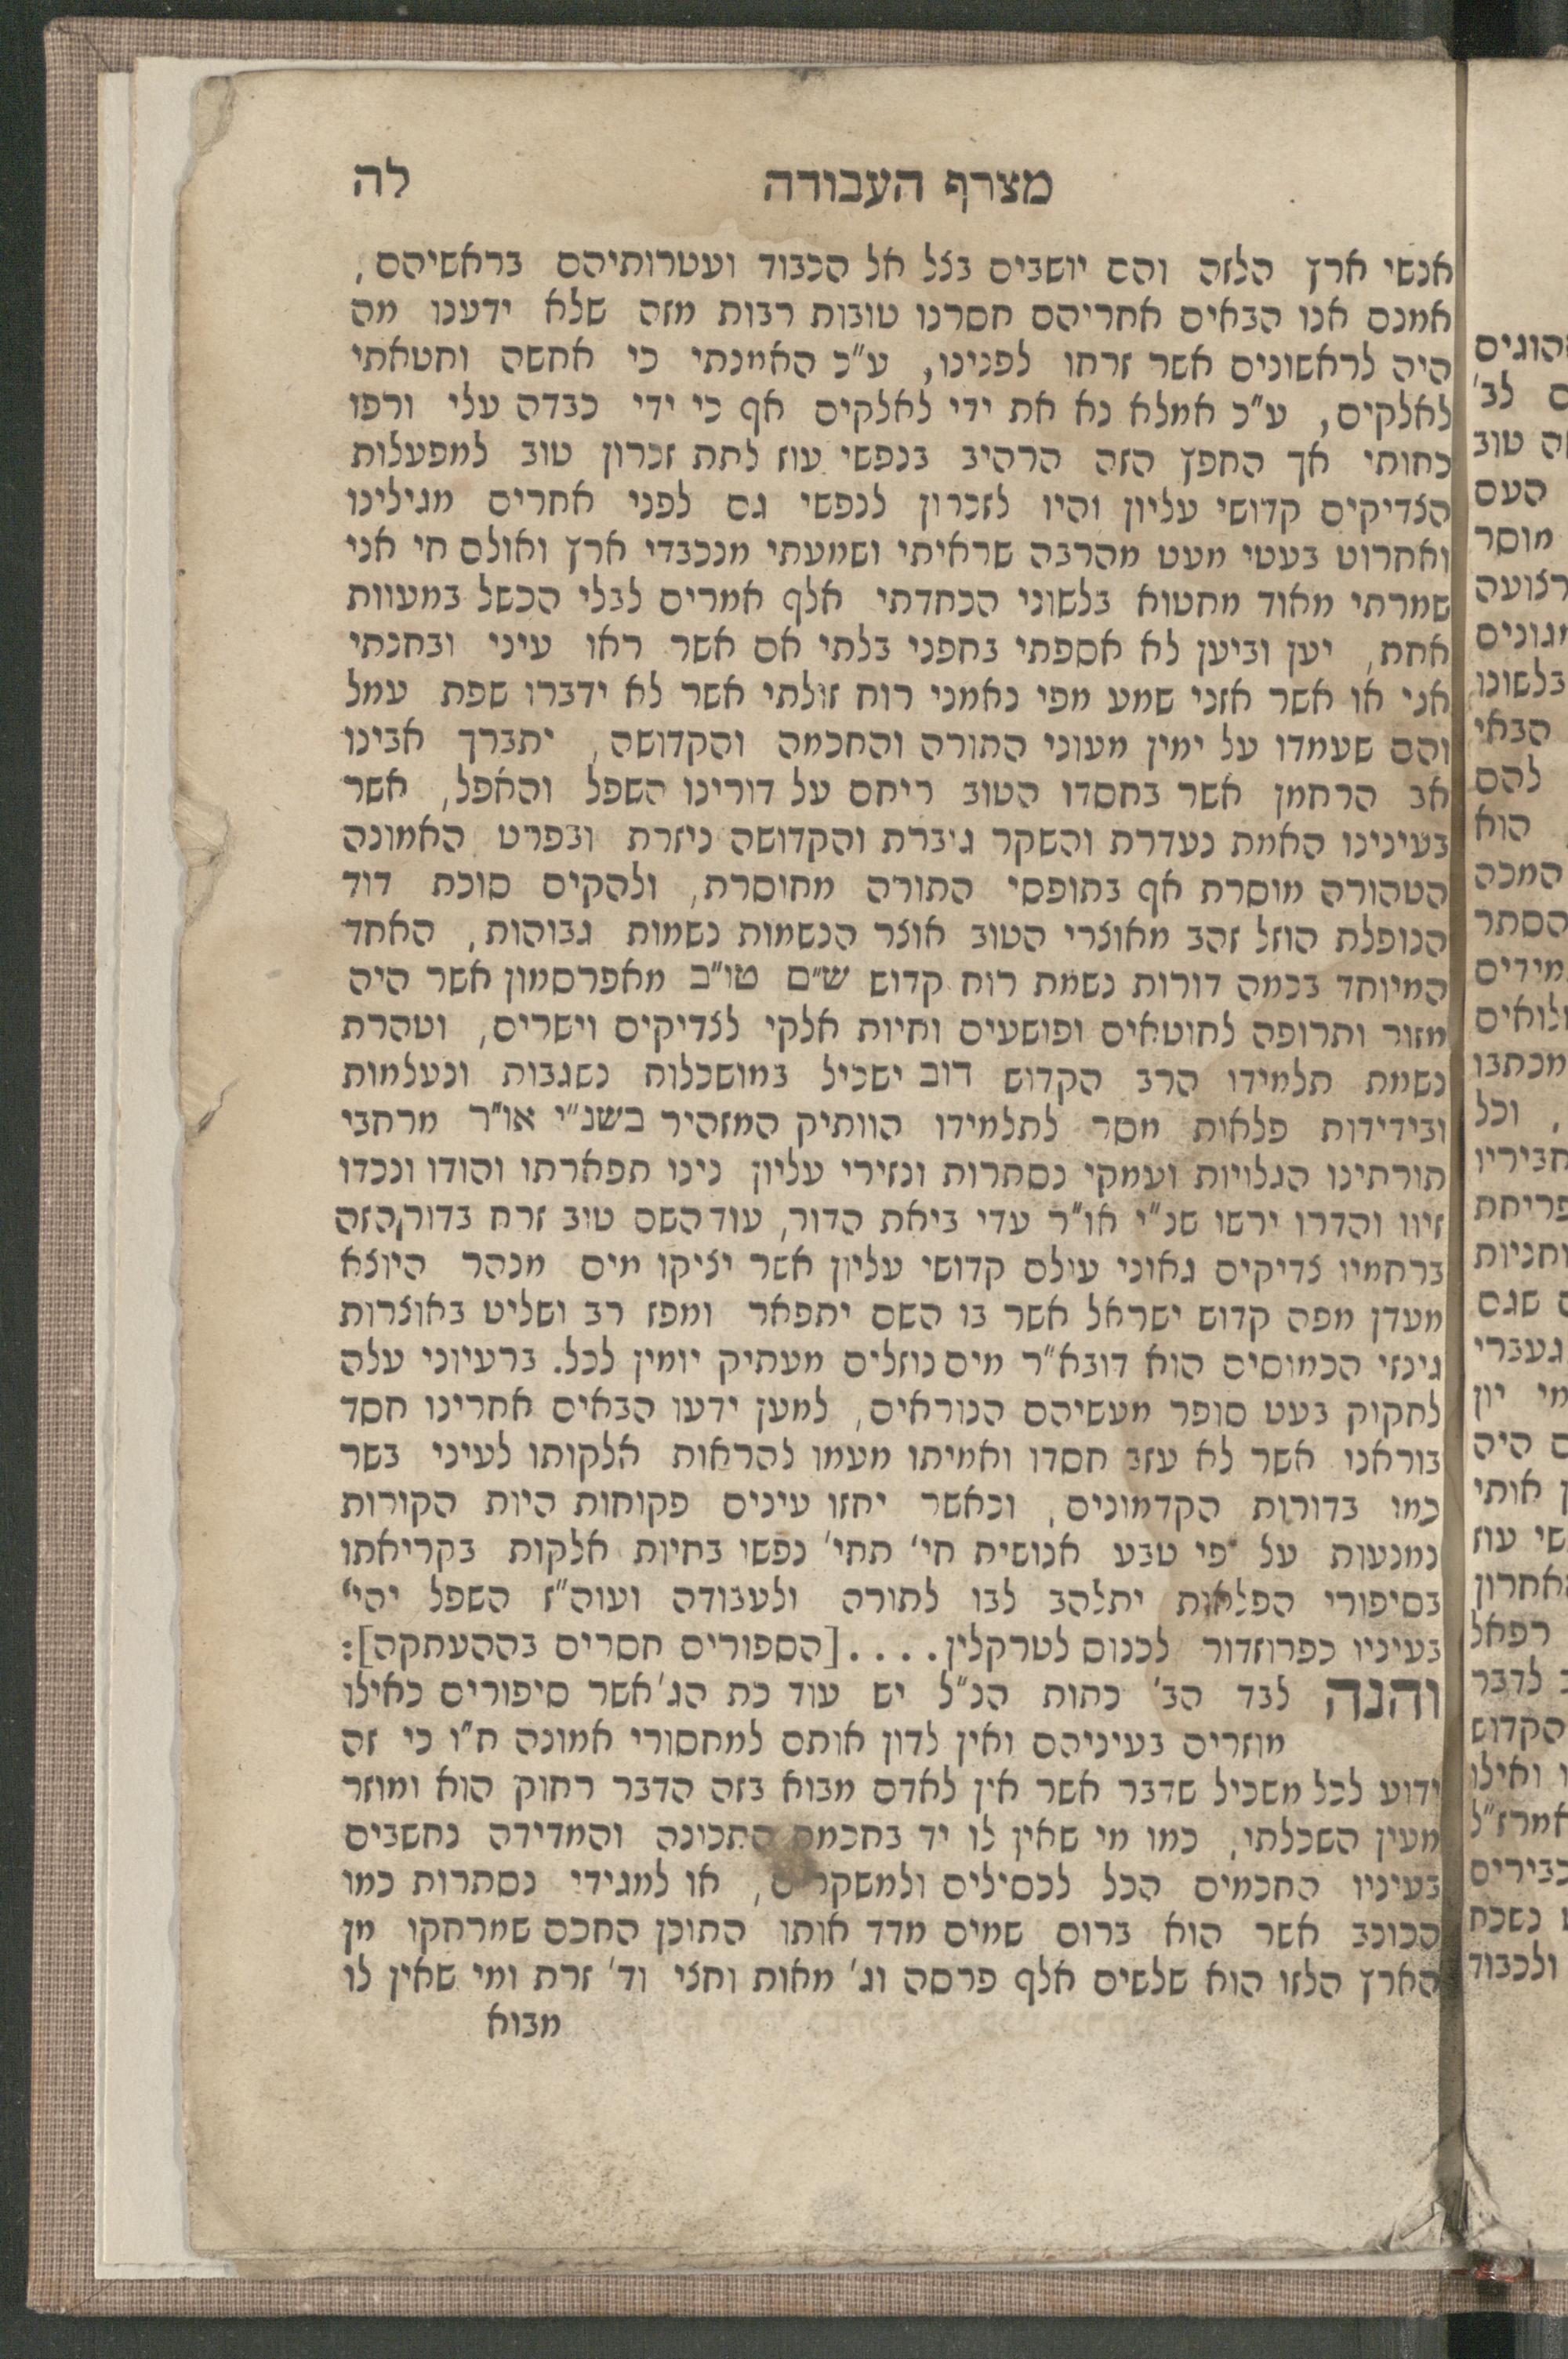 מצרף העבודה לה
אנשי ארץ הלזה והם יושבים בצל אל הכבוד ועטרותיהם בראשיהם,
אמנם אנו הבאים אחריהם חסרנו טובות רבות מזה שלא ידענו מה
היה לראשונים אשר זרחו לפנינו, ע"כ האמנתי כי אחשה וחטאתי
לאלקים, ע"כ אמלא נא את ידי לאלקים אף כי ידי כבדה עלי ורפו
כחותי אך החפץ הזה הרהיב בנפשי עוז לתת זכרון טוב למפעלות
הצדיקים קדושי עליון והיו לזכרון לנפשי גם לפני אחרים מגילינו
ואחרוט בעטי מעט מהרבה שראיתי ושמעתי מנכבדי ארץ ואולם חי אני
שמרתי מאוד מחטוא בלשוני הכחדתי אלף אמרים לבלי הכשל במעוות
אחת, יען וביען לא אספתי בחפני בלתי אם אשר ראו עיני ובחנתי
אני או אשר אזני שמע מפי נאמני רוח זולתי אשר לא ידברו שפת עמל
והם שעמדו על ימין מעוני התורה והחכמה והקדושה, יתברך אבינו
אב הרחמן אשר בחסדו הטוב ריחם על דורינו השפל והאפל, אשר
בעינינו האמת נעדרת והשקר גוברת והקדושה ניזרת ובפרט האמונה
הטהורה מוסרת אף בתופסי התורה מחוסרת, ולהקים סוכת דוד
הנופלת הוזל זהב מאוצרי הטוב אוצר הנשמות נשמות גבוהות, האחד
המיוחד בכמה דורות נשמת רוח קדוש ש"ם טו"ב מאפרסמון אשר היה
מזור ותרופה לחוטאים ופושעים וחיות אלקי לצדיקים וישרים, וטהרת
נשמת תלמידו הרב הקדוש דוב ישכיל במושכלות נשגבות ונעלמות
ובידידות פלאות מסר לתלמידו הוותיק המזהיר בשנ"י או"ר מרחבי
תורתינו הגלויות ועמקי נסתרות ונזירי עליון נינו תפארתו והודו ונכדו
זיוו והדרו ירשו שנ"י או"ר עדי ביאת הדור, עוד השם טוב זרח בדור הזה
ברחמיו צדיקים גאוני עולם קדושי עליון אשר יציקו מים מנהר היוצא
מעדן מפה קדוש ישראל אשר בו השם יתפאר ומפז רב ושליט באוצרות
גינזי הכמוסים הוא דובא"ר מים נוזלים מעתיק יומין לכל. ברעיוני עלה
לחקוק בעט סופר מעשיהם הנוראים, למען ידעו הבאים אחרינו חסד
בוראנו אשר לא עזב חסדו ואמיתו מעמו להראות אלקותו לעיני בשר
כמו בדורות הקדמונים, וכאשר יחזו עינים פקוחות היות הקורות
נמנעות על פי טבע אנושית חי' תחי' נפשו בחיות אלקות בקריאתו
בסיפורי הפלאות יתלהב לבו לתורה ולעבודה ועוה"ז השפל יהי'
בעיניו כפרוזדור לכנוס לטרקלין. . . . [הספורים חסרים בההעתקה]:
והנה לבד הב' כתות הנ"ל יש עוד כת הג' אשר סיפורים כאילו
מוזרים בעיניהם ואין לדון אותם למחסורי אמונה ח"ו כי זה
ידוע לכל משכיל שדבר אשר אין לאדם מבוא בזה הדבר רחוק הוא ומוזר
מעין השכלתי, כמו מי שאין לו יד בחכמת התכונה והמדידה נחשבים
בעיניו החכמים הכל לכסילים ולמשקרים, או למגידי נסתרות כמו
הכוכב אשר הוא ברום שמים מדד אותו התוכן החכם שמרחקו מן
הארץ הלזו הוא שלשים אלף פרסה וג' מאות וחצי וד' זרת ומי שאין לו
מבוא
הוגים
ם לב'
ה טוב
העם
מוסר
רצועה
מגונים
בלשונו
הבאי
להם
הוא
המכה
הסתר
מידים
לואים
מכתבו
, וכל
חביריו
פריחת
וחניות
ם שגם
געברי
מי יון
ם היה
ן אותי
שי עוז
אחרון
רפאל
ב לדבר
הקדוש
ו ואילו
אמרז"ל
כבירים
נשכח
ולכבוד